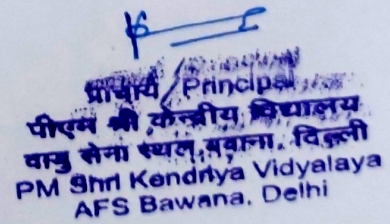 प्राचार्य / Principal
पीएम श्री केन्द्रीय विद्यालय
वायु सेना स्थल, बवाना, दिल्ली
PM Shri Kendriya Vidyalaya
AFS Bawana, Delhi